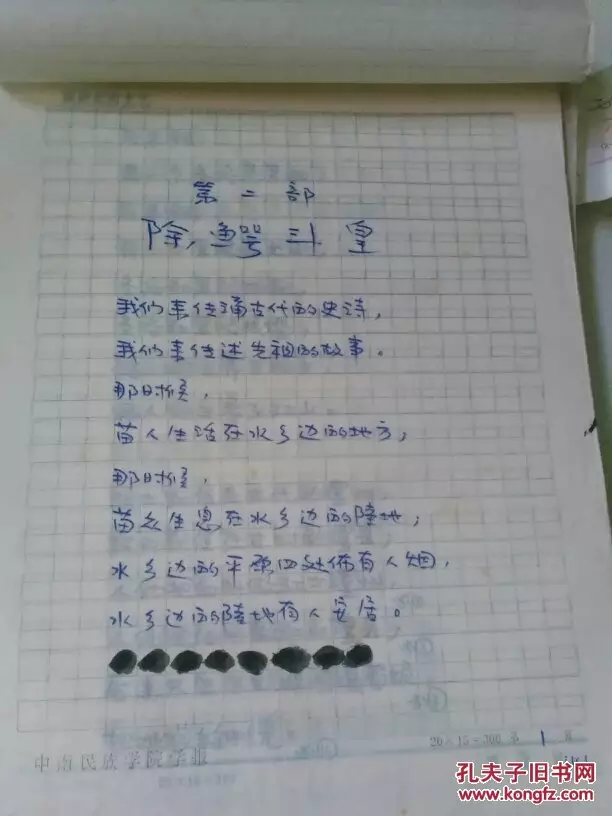 第二部
除鳄斗皇
我们来传诵古代的史诗,
我们来传述先祖的故事。
那时候,
苗人生活在水乡边的地方;
那时候,
苗众生息在水乡边的陆地;
水乡边的平原四处佈有人烟,
水乡边的陆地有人安居。
20×15=300 第 1 页
中南民族学院学报
孔夫子旧书网
www.kongfz.com